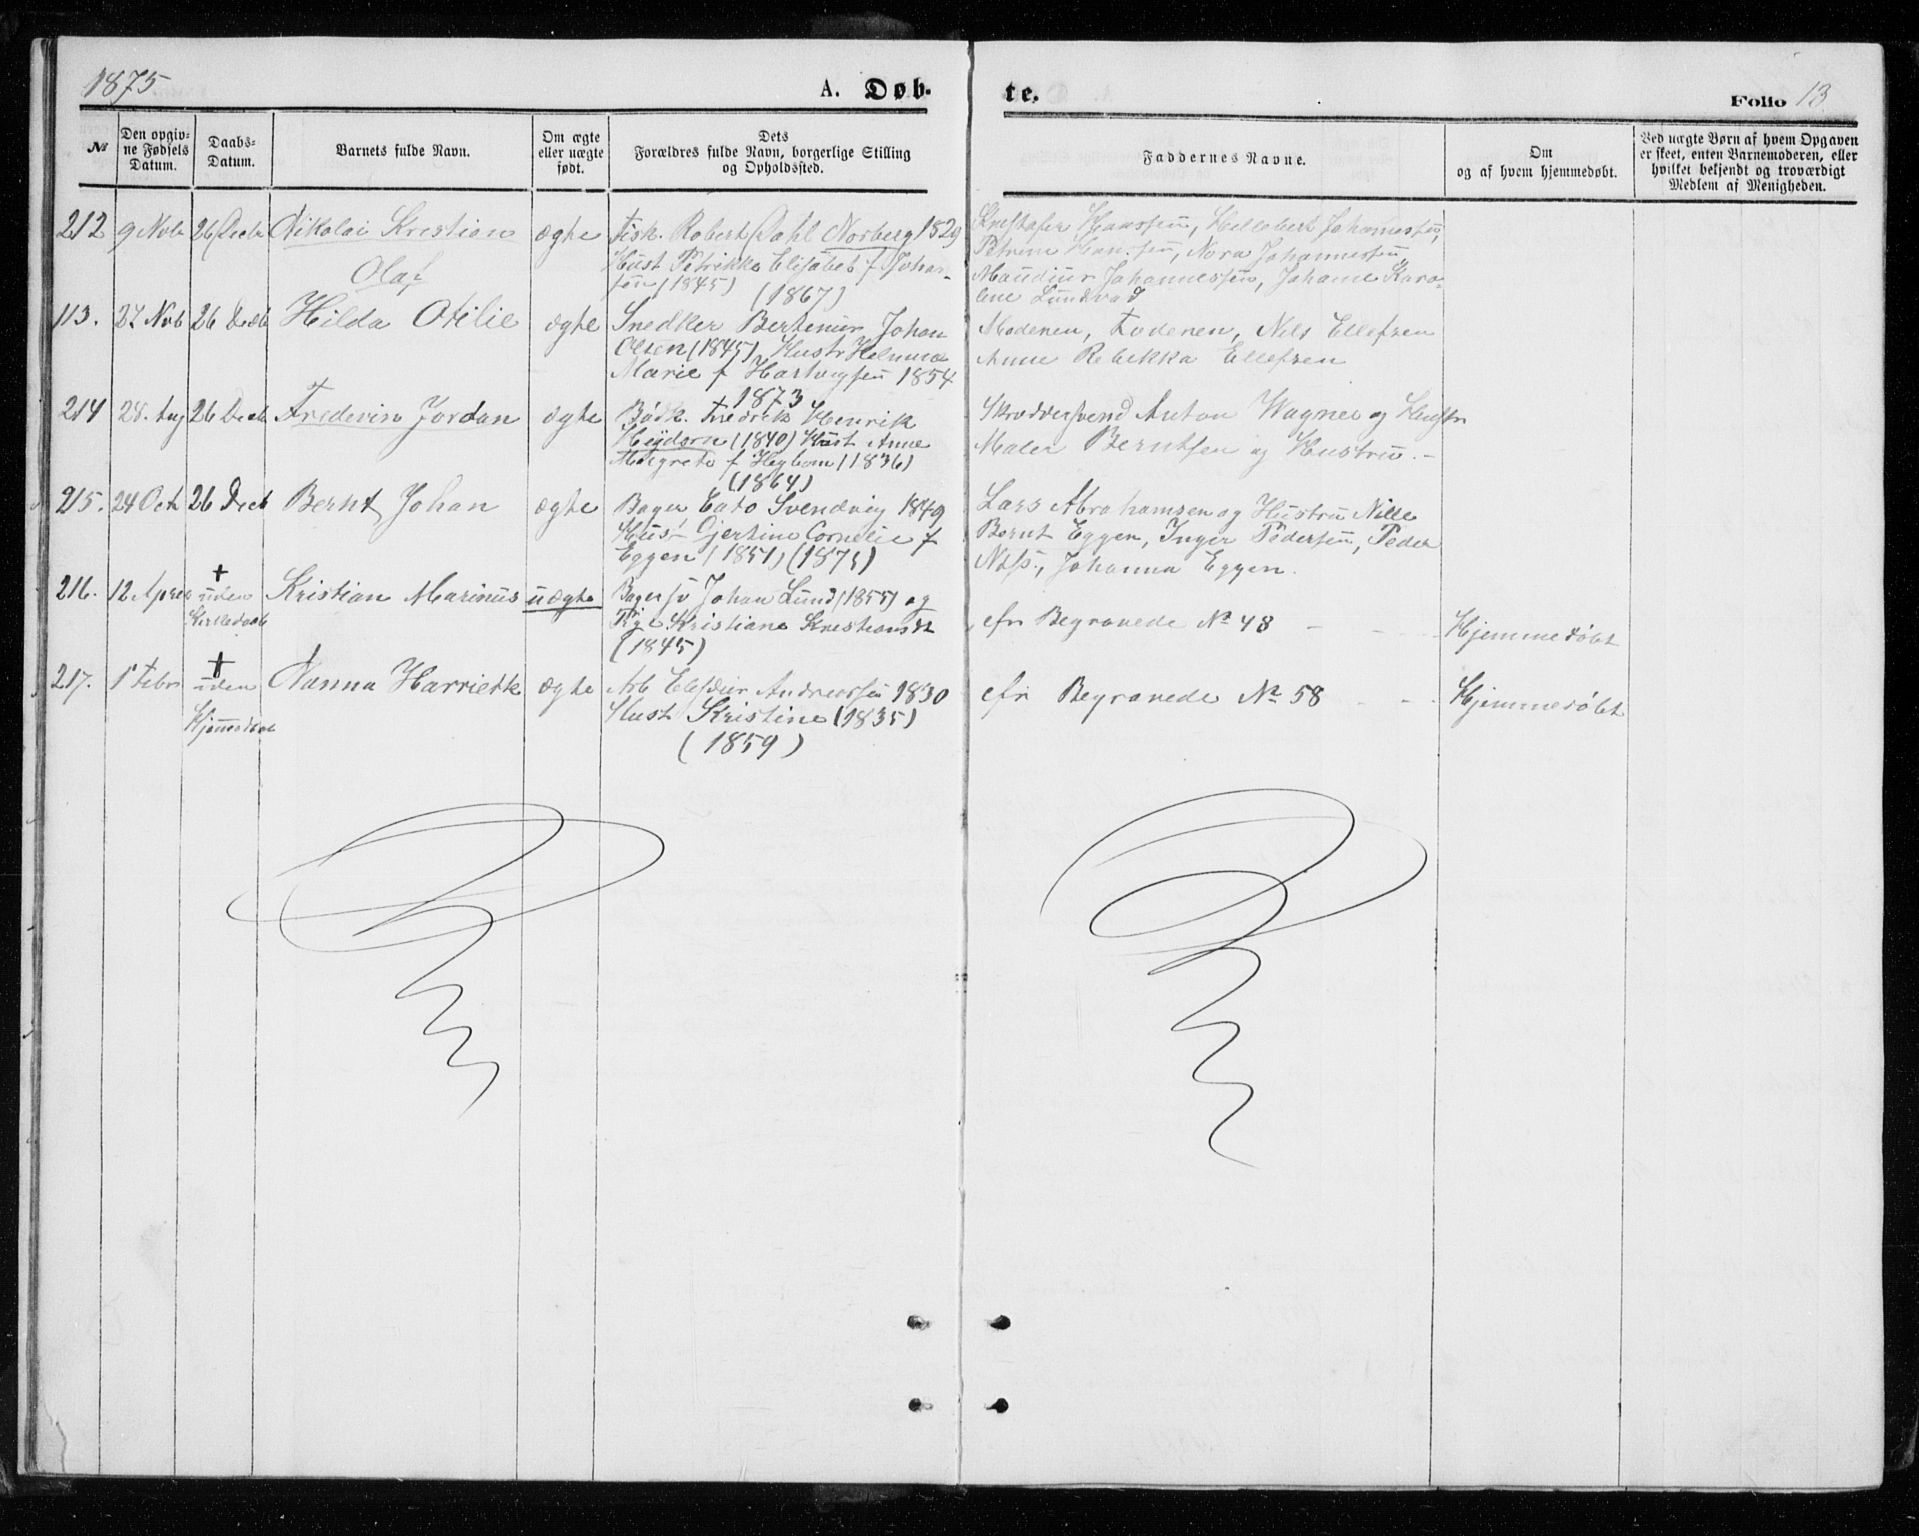 1875
A. Døb-
te.
Folio 13
№
Den opgiv-
ne Fødsels
Datum.
Daabs-
Datum.
Barnets fulde Navn.
Om ægte
eller uægte
født.
Dets
Forældres fulde Navn, borgerlige Stilling
og Opholdssted.
Faddernes Navne.
Om
og af hvem hjemmedøbt.
Ved uægte Børn af hvem Opgaven
er skeet, enten Barnemoderen, eller
hvilket bekjendt og troværdigt
Medlem af Menigheden.
212 9 Nvb 26 Decb Nikolai Kristian
Olaf
ægte
Fisk. Robert Dahl Norberg 1529
Hust Petrikke Elisabet f Johan-
sen (1845) (1867)
Hanssen, Johannessen,
Petrine Hanssen, Nora Johannessen,
Johannessen, Johane Karo-
line Lundvad
113. 27 Nvb 26 Decb Hilda Otilie
ægte
Snedker Bertinus Johan
Olsen (1845), Hustr Helmina
Marie f Hartvigsen 1854
1873
Moderen, Faderen, Nils Ellefsen
Anne Rebekka Ellefsen
214 28. Aug 26 Decb Frederin Jordan
ægte
Bødk. Fredrik Henrik
Heijdorn (1840) Hust Anne
Margrete f Hegbom (1836)
(1864)
Skræddersvend Anton Wagner og Hustr
Maler Berntsen og Hustru. –
215. 24 Octb 26 Decb Bernt Johan
ægte
Bager Eato Svendvig 1849
Hus- Gjertine Cornelie f
Eggen (1851) (1875)
Lars Abrahamsen og Hustru Nille
Bernt Eggen, Inger Pedersen, Peder
Johanna Eggen.
216. 12 April
+
uden
Kirkedaab
Kristian Marinus
uægte
Bagersv Johan Lund (1855) og
Pige Kristiane Kristiansdt
(1845)
cfr Begravede № 48 – – -
Hjemmedøbt
217. 1 Febr
+
uden
Hjemmedaab
Nanna Harriette
ægte
Arb Andreassen 1830
Hust Kristine (1835)
(1859)
cfr Begravede № 58 - - -
Hjemmedøbt